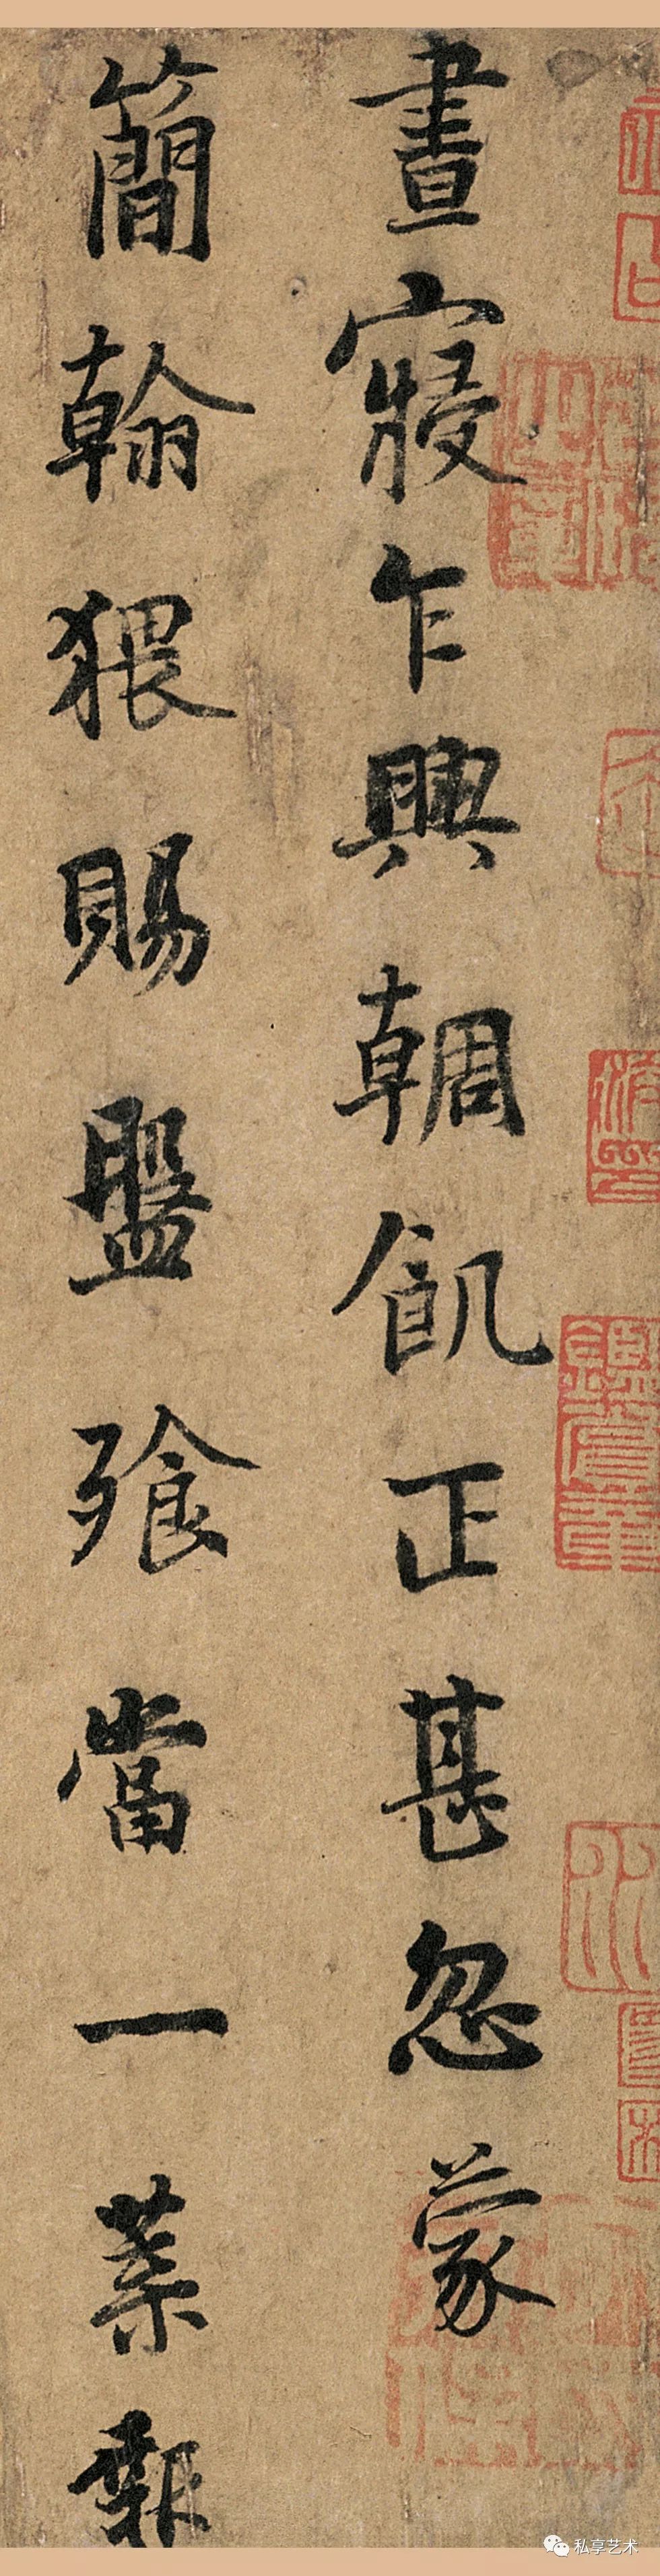 晝寢乍興輖飢正甚忽蒙
簡翰猥賜盤飱當一葉報
私享艺术